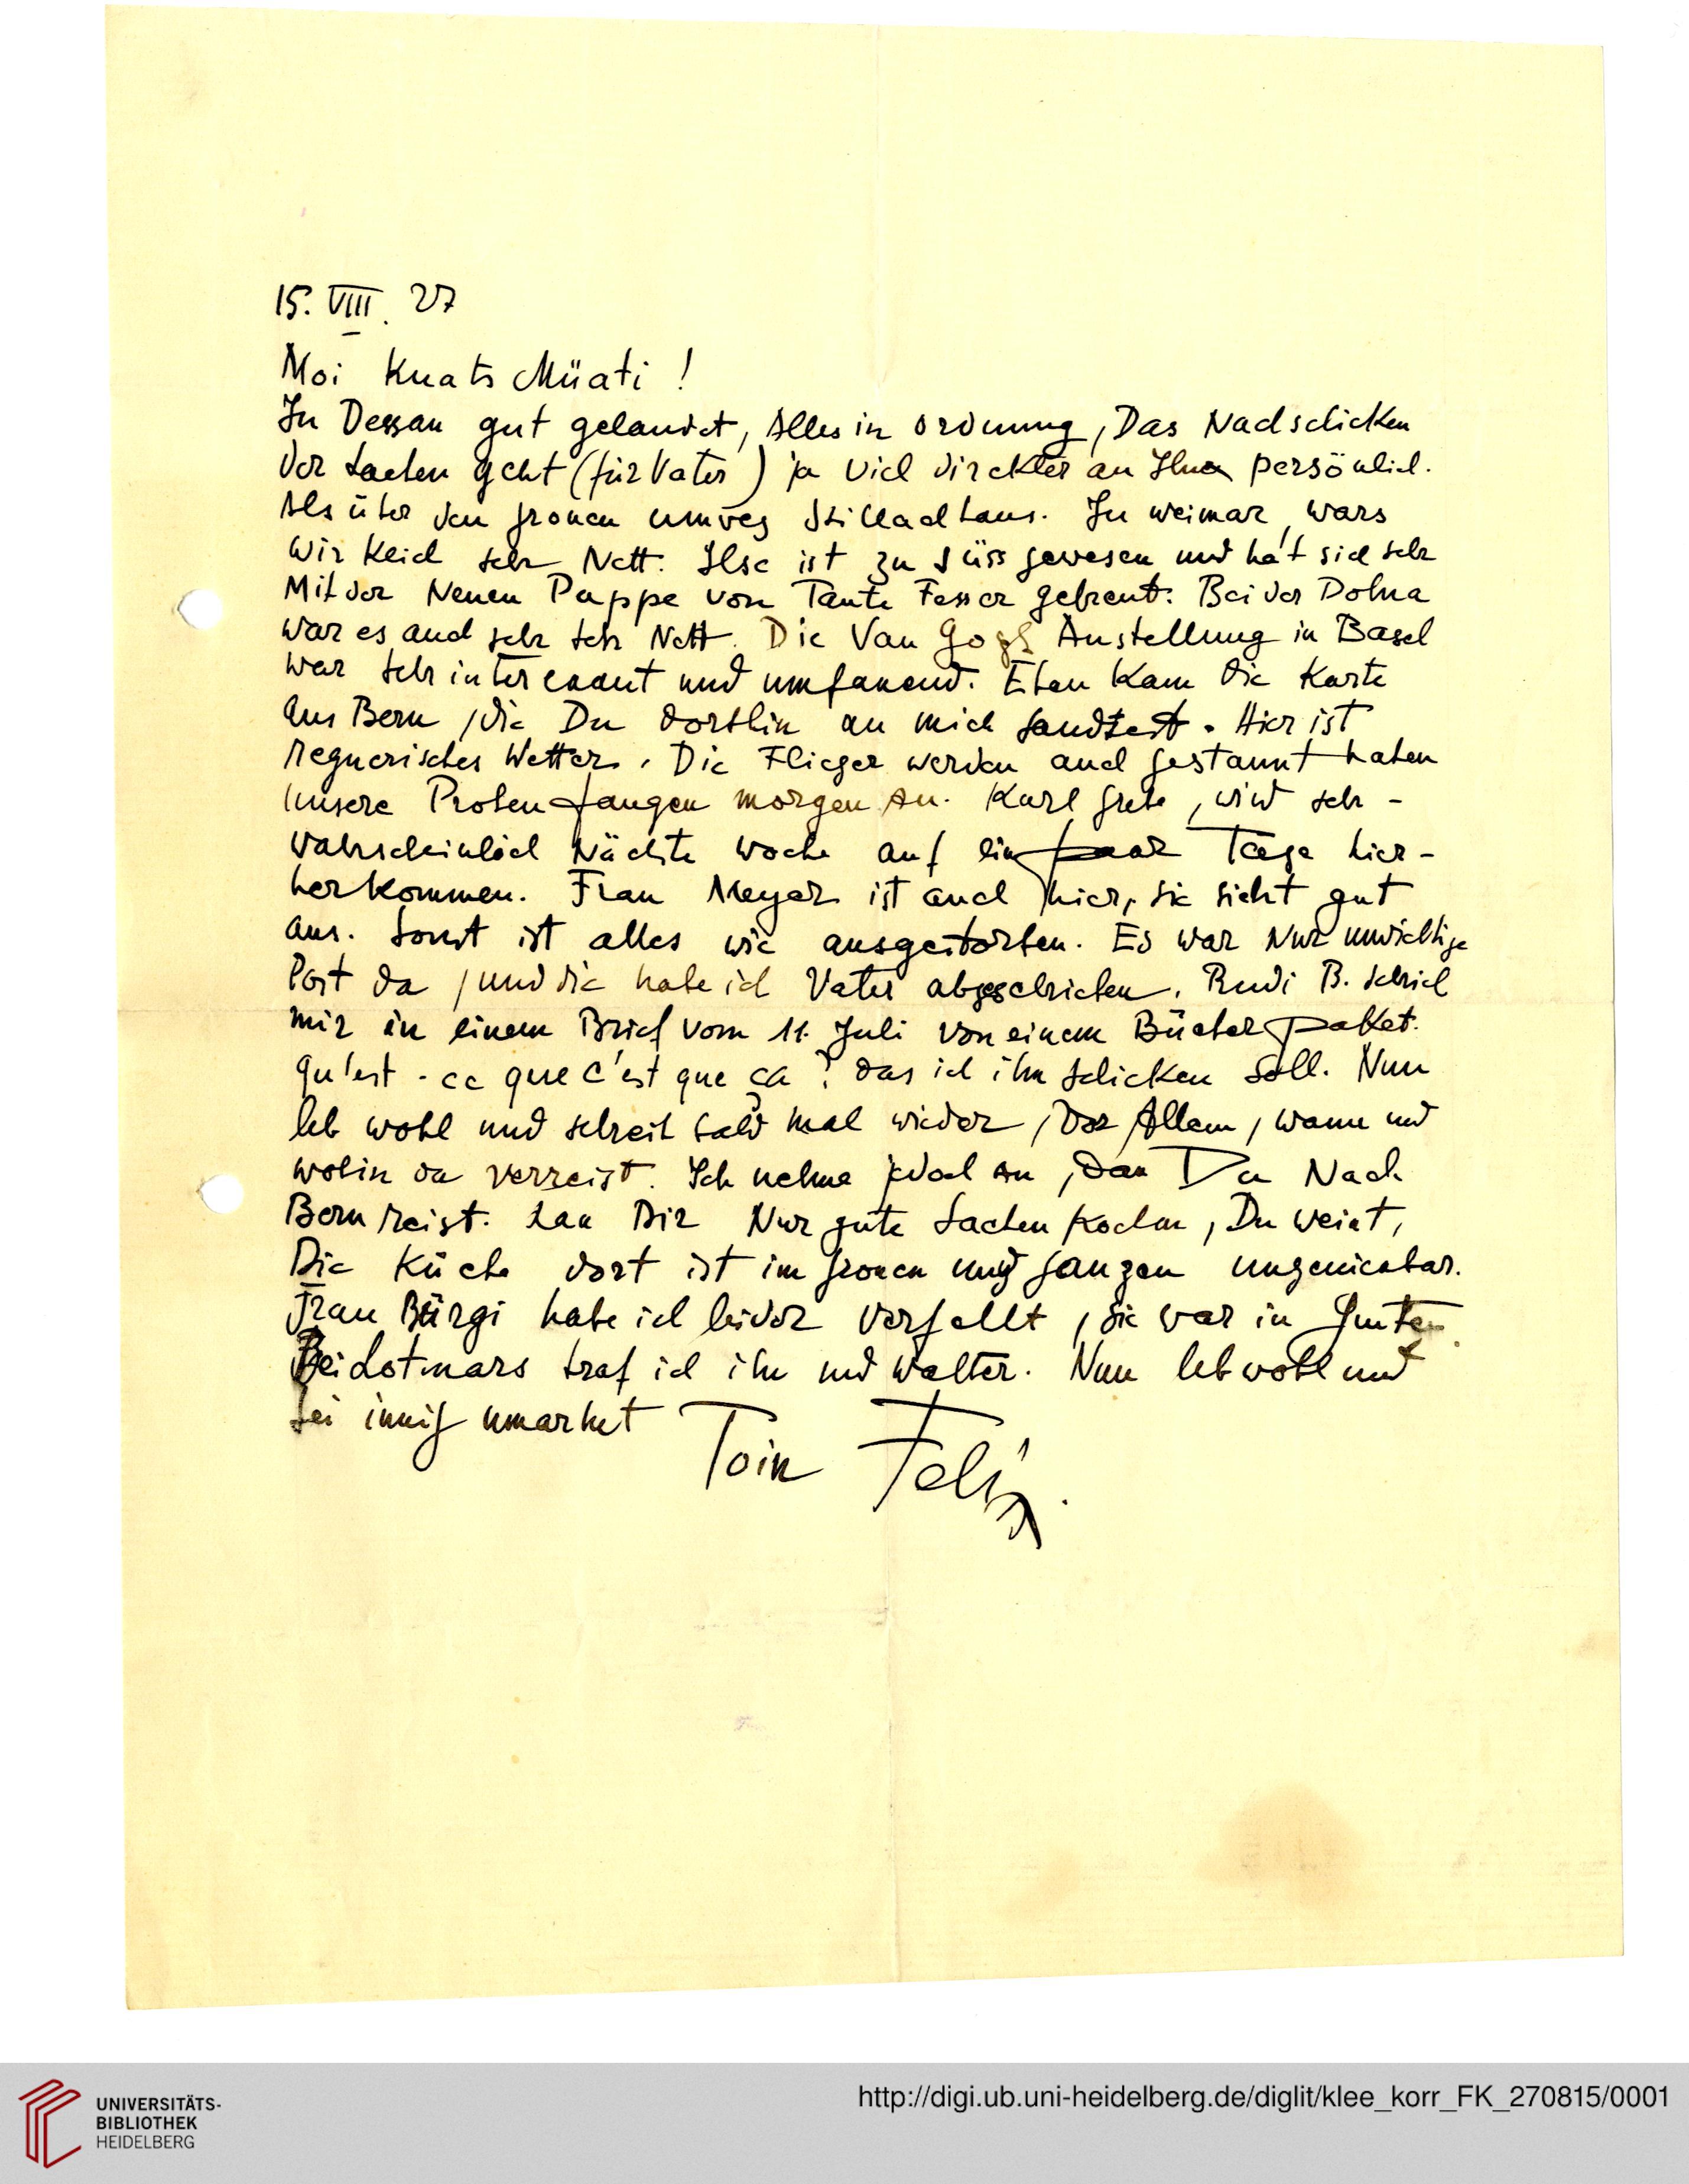 15. VIII. 27
Moi Knats Müati!
In Dessau gut gelandet, Alles in ordnung, Das Nachschicken
der sachen geht (für Vater) ja viel direkter an Ihn persönlich.
Als über den grossen umweg
In weimar, wars
wir kleich sehr Nett. Ilse ist zu süss gewesen und hat sich sehr
Mit der Neuen Puppe von Tante Fesser gefreut. Bei der Dohna
war es auch sehr sehr Nett. Die Van Gogh Austellung in Basel
war sehr interessant und umfassend. Eben kam die karte
aus Bern, die Du dorthin an mich sandtest. Hier ist
regnerisches Wetter. Die Flieger werden auch gestaunt haben
Unsere Proben fangen morgen An. Karl Grebe, wird sehr-
wahrscheinlich Nächste woche auf ein paar Tage hier-
herkommen. Frau Meyer ist auch hier, sie sieht gut
aus. sonst ist alles wie ausgestorben. Es war Nur unwichtige
Post da, und die habe ich Vater abgeschrieben. Rudi B. schrieb
mir in einem Brief vom 11. Juli von einem Bücherpaket.
qu'est-ce que c'est que ça? das ich ihm schicken soll. Nun
leb wohl und schreib bald mal wieder, Vor Allem, wann und
wohin du verreist. Ich nehme jedoch an, dass Du Nach
Bern reist. Lass Dir Nur gute sachen kochen, Du weisst,
Die Küche dort ist im grossen und ganzen ungeniessbar.
Frau Bürgi habe ich leider verfehlt, sie war in Gunten.
Bei Lotmars traf ich ihn und Walter. Nun leb wohl und
sei innig umarmt
Toin Felix.
UNIVERSITÄTS-
BIBLIOTHEK
HEIDELBERG
http://digi.ub.uni-heidelberg.de/diglit/klee_korr_FK_270815/0001